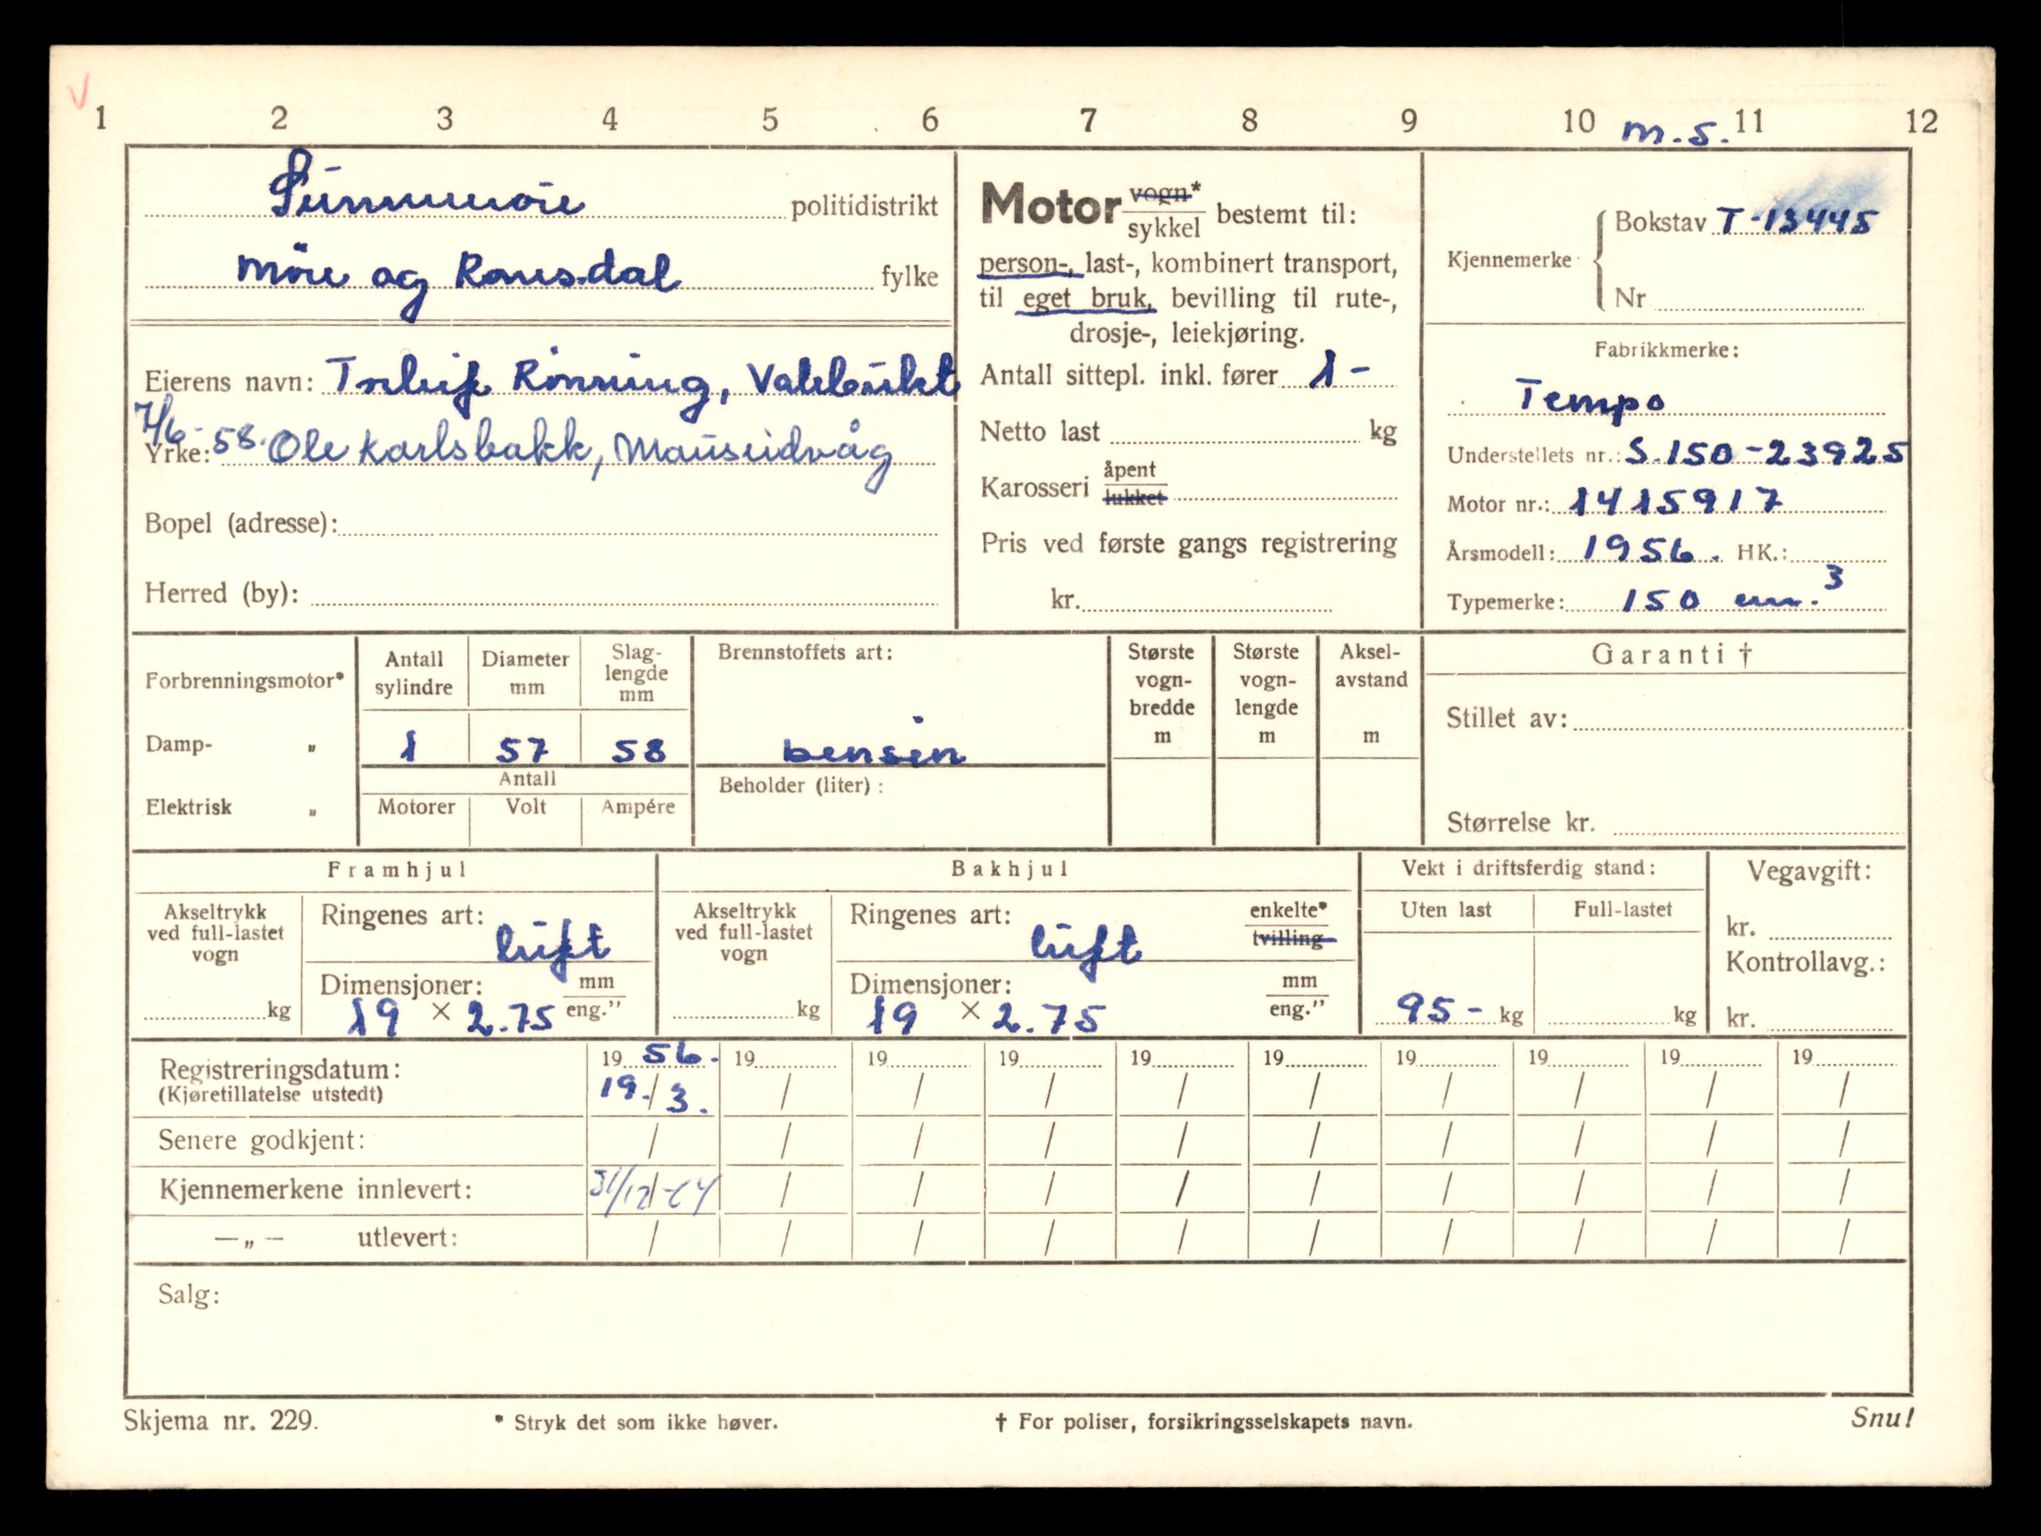 1 2 3 4 5 6 7 8 9 10 m.s. 11 12
Sunnmøre politidistrikt
Møre og Romsdal fylke
Eierens navn: Rönning, Valebukt
7/6-58. Yrke: Ole Karlsbakk, Mauseidvåg
Bopel (adresse):
Herred (by):
Motor vogn* / sykkel bestemt til:
person-, last-, kombinert transport,
til eget bruk, bevilling til rute-,
drosje-, leiekjøring.
Antall sittepl. inkl. fører 1-
Netto last kg
Karosseri åpent / lukket
Pris ved første gangs registrering
kr.
Kjennemerke
Bokstav T-13445
Nr
Fabrikkmerke:
Tempo
Understellets nr.: S.150-23925
Motor nr.: 1415917
Årsmodell: 1956. HK.:
Typemerke: 150 cm.3
Forbrenningsmotor*
Damp- „
Elektrisk „
Antall sylindre
Diameter mm
Slag-lengde mm
1 57 58
Antall
Motorer Volt Ampére
Brennstoffets art:
bensin
Beholder (liter):
Største vogn-bredde m
Største vogn-lengde m
Aksel-avstand m
Garanti †
Stillet av:
Størrelse kr.
Framhjul
Akseltrykk ved full-lastet vogn
kg
Ringenes art: luft
Dimensjoner: mm / eng."
19 × 2.75
Bakhjul
Akseltrykk ved full-lastet vogn
kg
Ringenes art: luft
enkelte* / tvilling
Dimensjoner: mm / eng."
19 × 2.75
Vekt i driftsferdig stand:
Uten last Full-lastet
95- kg kg
Vegavgift:
kr.
Kontrollavg.:
kr.
Registreringsdatum: 19 56. 19 19 19 19 19 19 19 19 19
(Kjøretillatelse utstedt) 19./3. / / / / / / / / /
Senere godkjent: / / / / / / / / / /
Kjennemerkene innlevert: 31/12-64 / / / / / / / / /
—„— utlevert: / / / / / / / / / /
Salg:
Skjema nr. 229. * Stryk det som ikke høver. † For poliser, forsikringsselskapets navn. Snu!